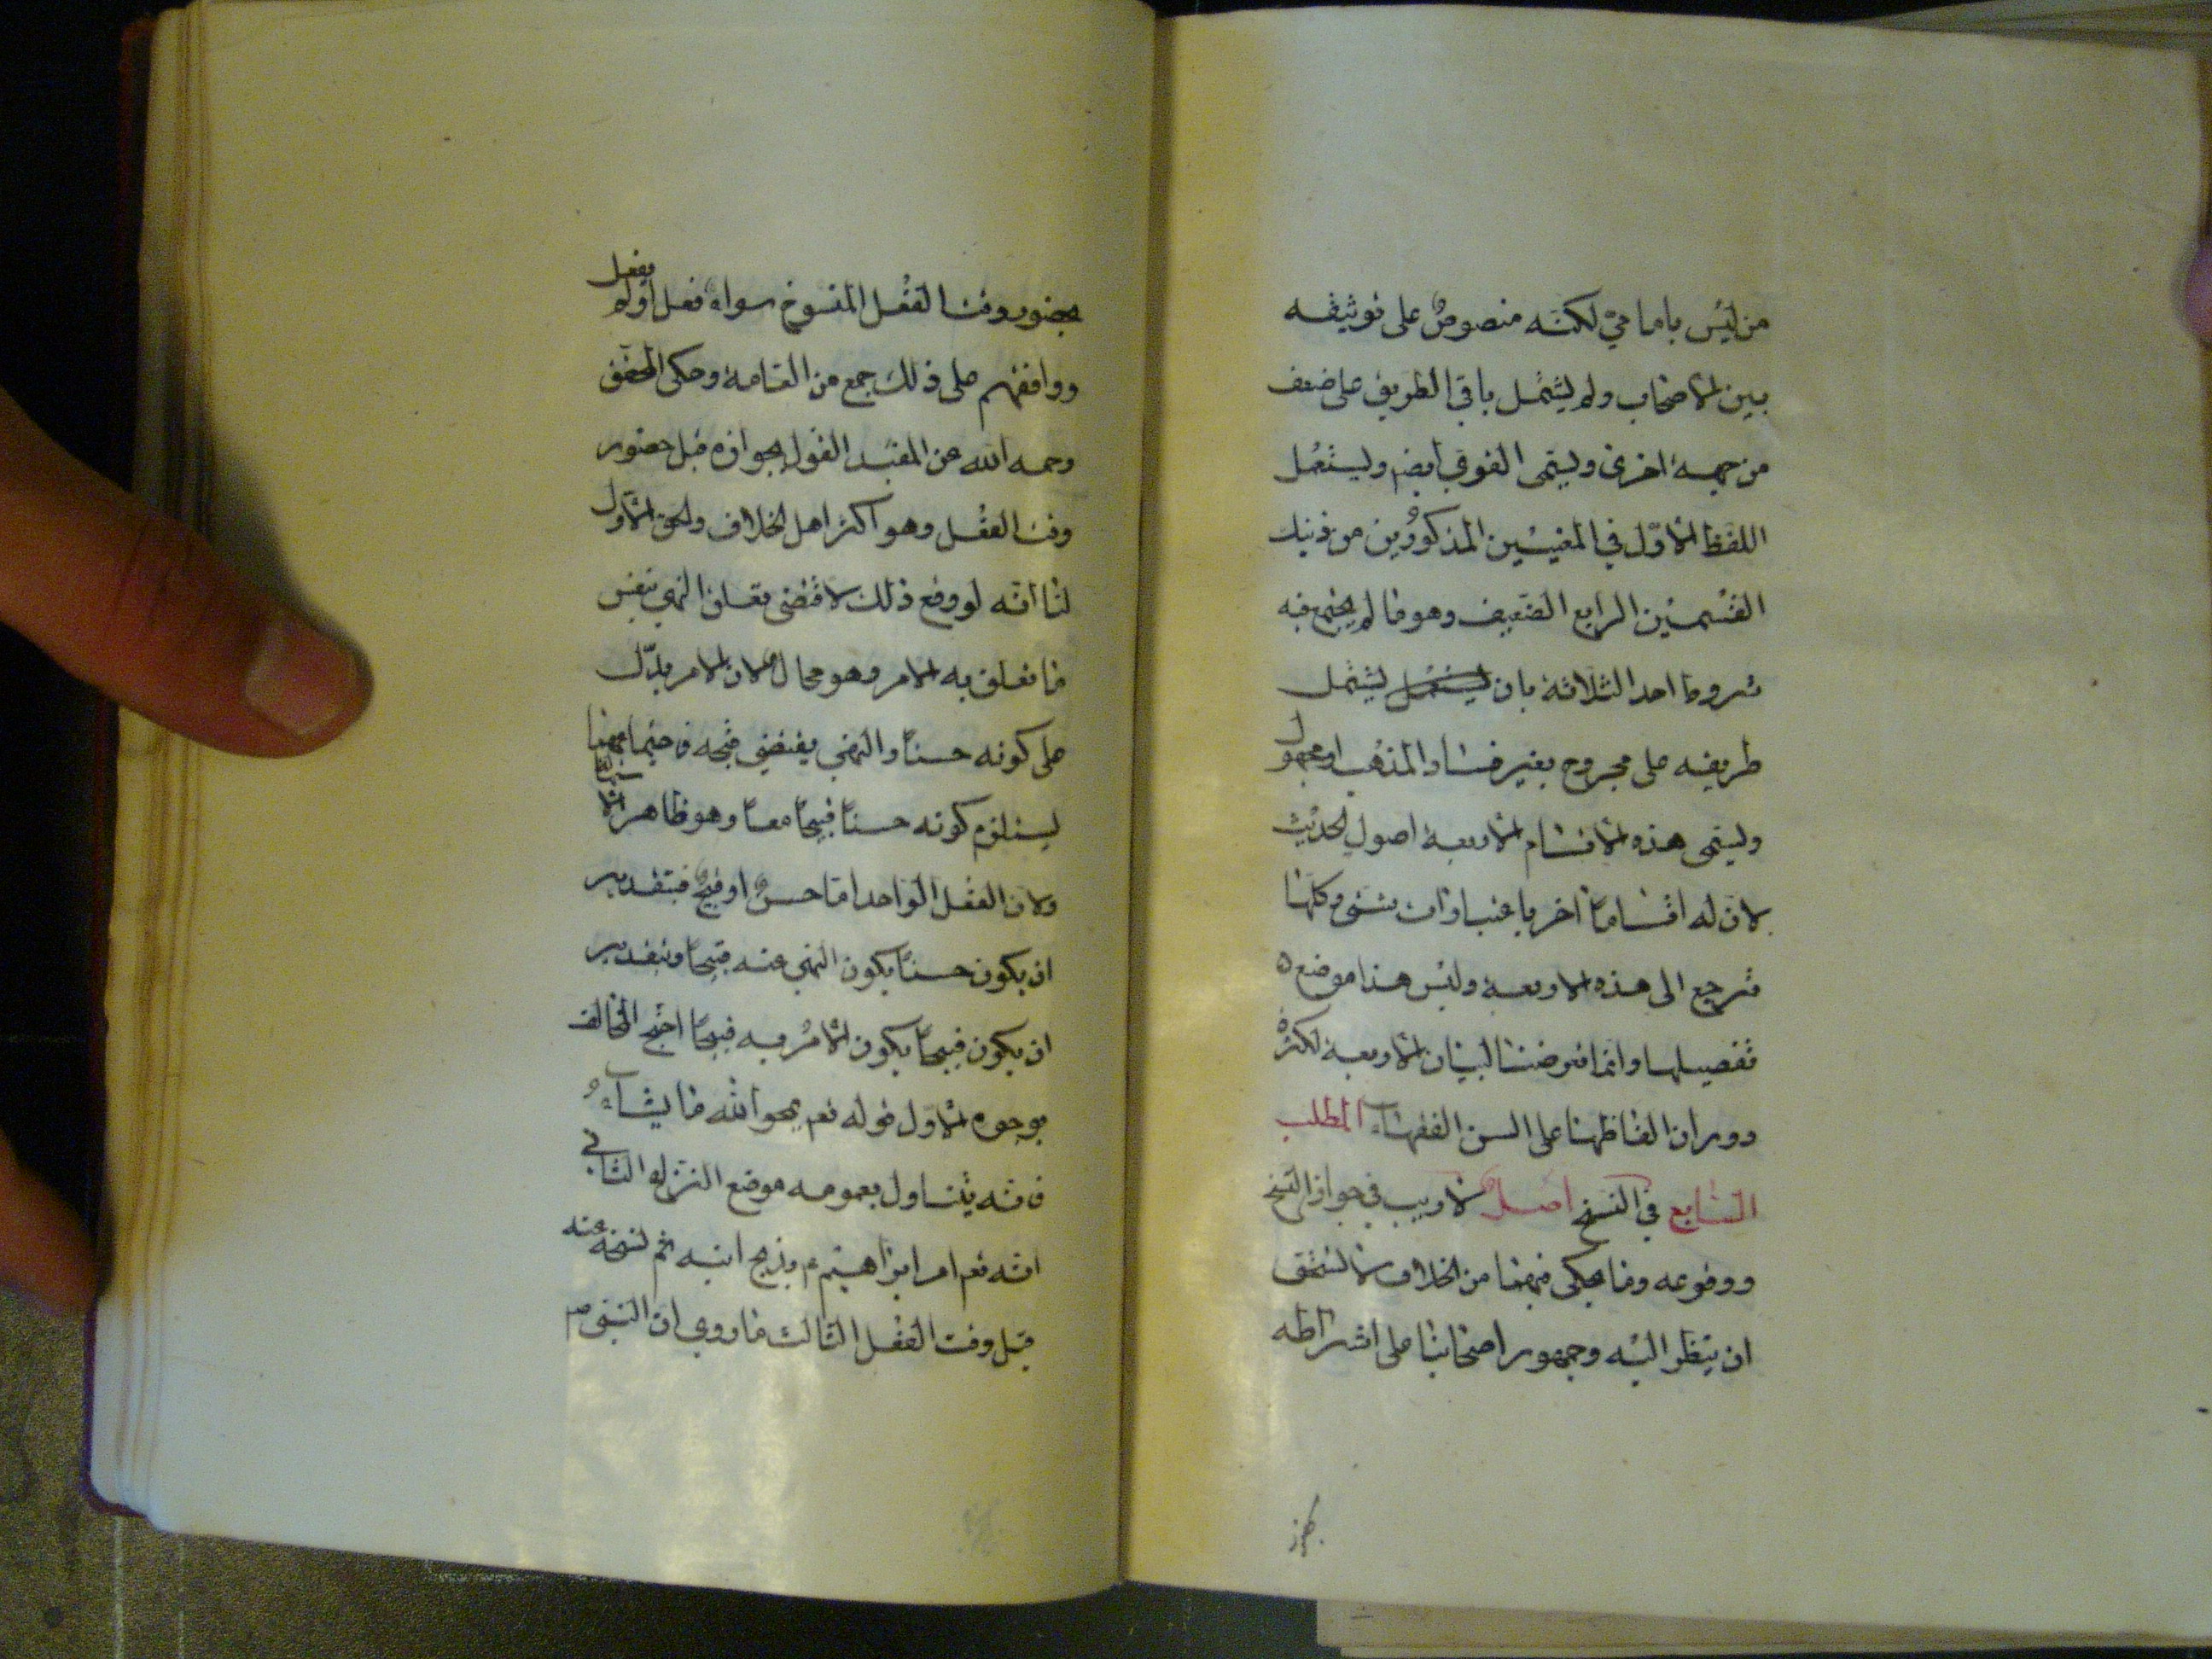 من ليس بامامي لكنه منصوص على توثيقه
بين الاصحاب ولم يشتمل باقي الطريق على ضعف
من جهة اخرى ويسمى القوي ايضا ويستعمل
اللفظ الاول في المعنيين المذكورين من ذينك
القسمين الرابع الضعيف وهو ما لم يجتمع فيه
شروط احد الثلاثة بان يشتمل
طريقه على مجروح بغير فساد المذهب او مجهول
ويسمى هذه الاقسام الاربعة اصول الحديث
لان له اقساما اخر باعتبارات شتى وكلها
ترجع الى هذه الاربعة وليس هذا موضع
تفصيلها وانما تعرضنا لبيان الاربعة لكثرة
دوران الفاظها على السن الفقهاء المطلب
السابع في النسخ اصل لا ريب في جواز النسخ
ووقوعه وما يحكى فيهما من الخلاف لا يستحق
ان ينظر اليه وجمهور اصحابنا على اشتراطه
بحضور وقت الفعل المنسوخ سواء فعل او لم يفعل
ووافقهم على ذلك جمع من العامة وحكى المحقق
رحمه الله عن المفيد القول بجوازه قبل حضور
وقت الفعل وهو اكثر اهل الخلاف والحق الاول
لنا انه لو وقع ذلك لاقتضى تعلق النهي بنفس
ما تعلق به الامر وهو محال لان الامر يدل
على كونه حسنا والنهي يقتضي قبحه فاجتماعهما
يستلزم كونه حسنا قبيحا معا وهو ظاهر
ولان الفعل الواحد اما حسن او قبيح فبتقدير
ان يكون حسنا يكون النهي عنه قبيحا وبتقدير
ان يكون قبيحا يكون الامر به قبيحا احتج المخالف
بوجوه الاول قوله تعم يمحو الله ما يشاء
فانه يتناول بعمومه موضع النزاع الثاني
انه تعم امر ابراهيم ع بذبح ابنه ثم نسخه عنه
قبل وقت الفعل الثالث ما روي ان النبي ص